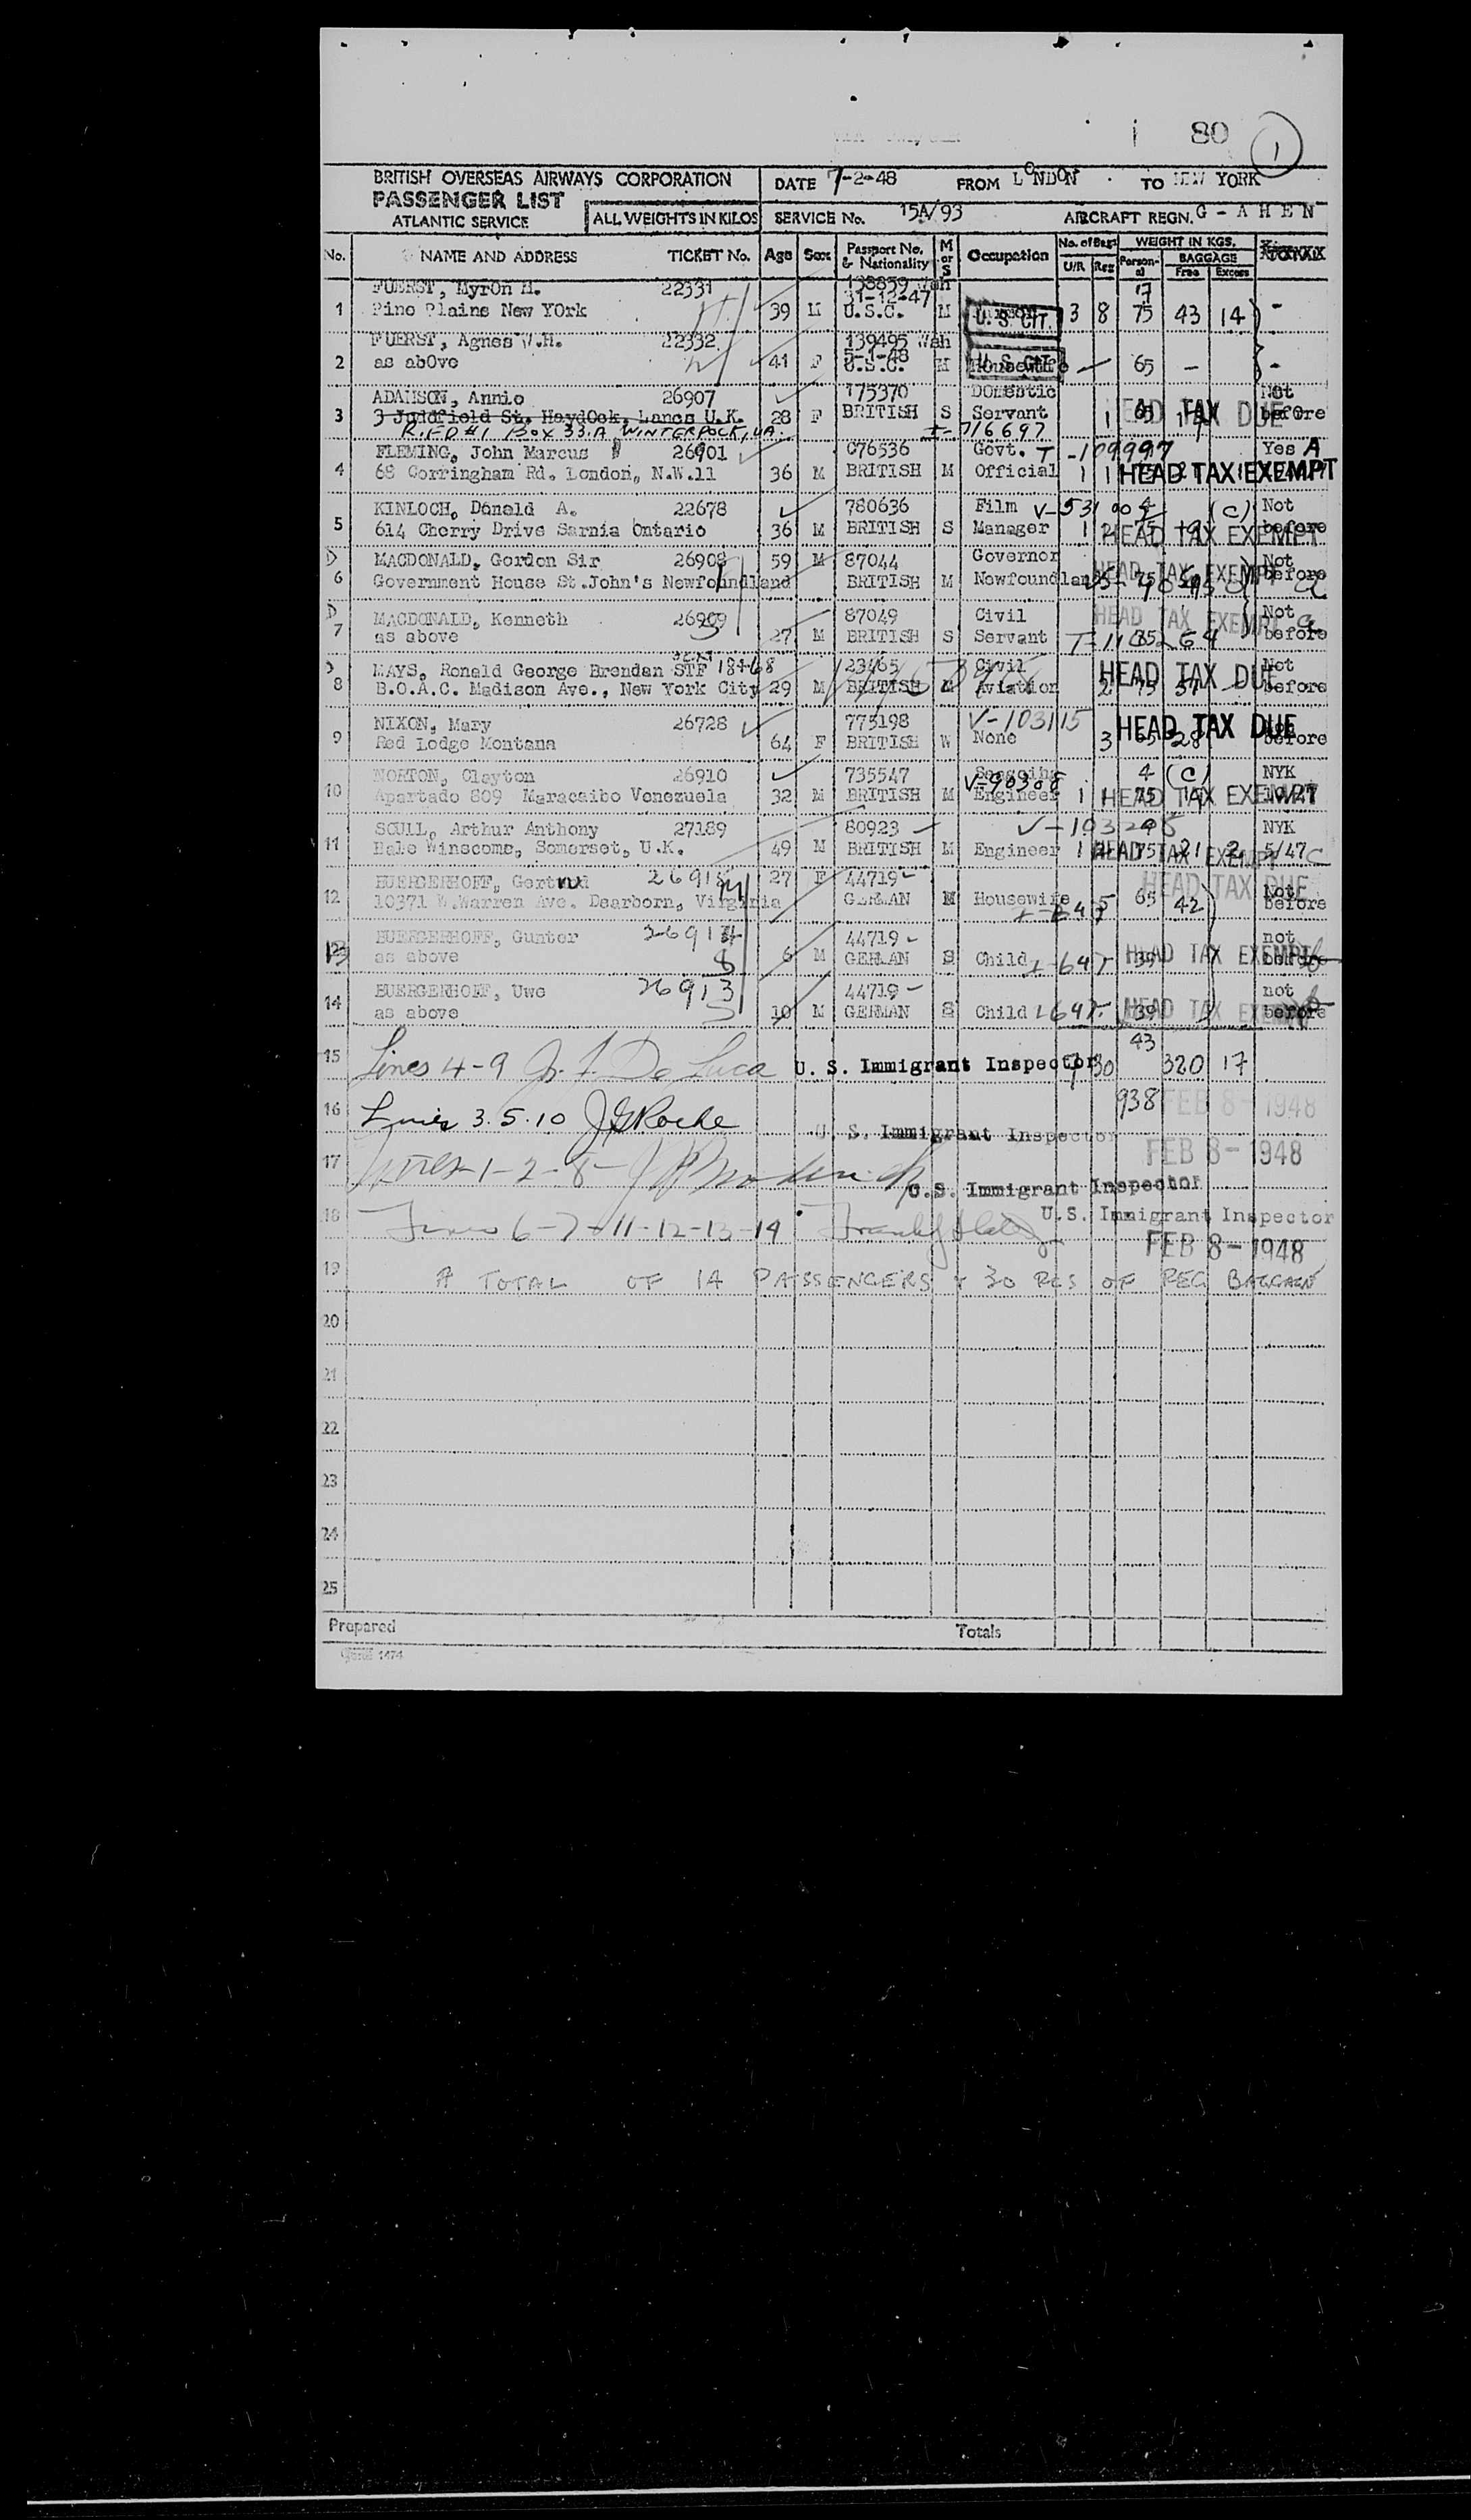 80 1
BRITISH OVERSEAS AIRWAYS CORPORATION DATE 7-2-48 FROM LONDON TO NEW YORK
PASSENGER LIST
ATLANTIC SERVICE ALL WEIGHTS IN KILOS SERVICE No. 15A/93 AIRCRAFT REGN. G-AHEN
No. NAME AND ADDRESS TICKET No. Age Sex Passport No. & Nationality M or S Occupation No. of Bags U/R Reg WEIGHT IN KGS. Personal BAGGAGE Free Excess
FUERST, Myron H. 22331 138859 Wsh 17
31-12-47
1 Pine Plains New YOrk 39 M U.S.C. M U.S. CIT. 3 8 75 43 14 -
FUERST, Agnes W.H. 22332 139495 Wsh
5-1-48
2 as abOve 41 F U.S.C. M Housewife U.S. CIT. - 65 - -
ADAMSON, Annie 26907 175370 Domestic Not
3 3 Juddfield St. HaydOck, Lancs U.K. 28 F BRITISH S Servant 1 HEAD TAX DUE before
R.F.D #1 BOX 33.A, WINTERPOCK, VA. I-716697
FLEMING, John Marcus 26901 C76536 Govt. T-109997 Yes A
4 68 Corringham Rd. London, N.W.11 36 M BRITISH M Official 1 1 HEAD TAX EXEMPT
KINLOCH, Donald A. 22678 780636 Film 4 (C) Not
5 614 Cherry Drive Sarnia Ontario 36 M BRITISH S Manager 1 2 75 HEAD TAX EXEMPT before
D MACDONALD, Gordon Sir 26908 59 M 87044 Governor Not
6 Government House St.John's Newfoundland BRITISH M Newfoundland HEAD TAX EXEMPT before
D MACDONALD, Kenneth 26909 87049 Civil HEAD TAX EXEMPT Not
7 as above 27 M BRITISH S Servant before
MAYS, Ronald George Brendan STF 18468 23465 Civil HEAD TAX DUE Not
8 B.O.A.C. Madison Ave., New York City 29 M BRITISH M Aviation 2 75 37 before
NIXON, Mary 26728 775198 V-103115 HEAD TAX DUE
9 Red Lodge Montana 64 F BRITISH W None 3 65 28 before
NORTON, Clayton 26910 735547 Seagoing V-90308 4 (C) NYK
10 Apartado 809 Maracaibo Venezuela 32 M BRITISH M Engineer 1 1 75 HEAD TAX EXEMPT
SCULL, Arthur Anthony 27189 80923 V-103295 NYK
11 Hale Winscombe, Somerset, U.K. 49 M BRITISH M Engineer 1 75 21 2 HEAD TAX EXEMPT 5/47 C
BUERGERHOFF, Gertrud 26915 27 F 44719 HEAD TAX DUE Not
12 10371 W.Warren Ave. Dearborn, Virginia GERMAN M Housewife 5 65 42 before
BUERGERHOFF, Gunter 26914 44719 not
13 as above 6 M GERMAN S Child HEAD TAX EXEMPT before
BUERGERHOFF, Uwe 26913 44719 not
14 as above 10 M GERMAN S Child 39 HEAD TAX EXEMPT before
43
15 Lines 4-9 J. F. De Luca U. S. Immigrant Inspector 7 30 320 17
16 Lines 3.5.10 J G Roche 938 FEB 8-1948
U. S. Immigrant Inspector
17 Lines 1-2-8- FEB 8-1948
U.S. Immigrant Inspector
18 Lines 6-7-11-12-13-14 U.S. Immigrant Inspector
FEB 8-1948
19 A TOTAL OF 14 PASSENGERS + 30 PCS OF REG BAGGAGE
20
21
22
23
24
25
Prepared Totals
Form 1474